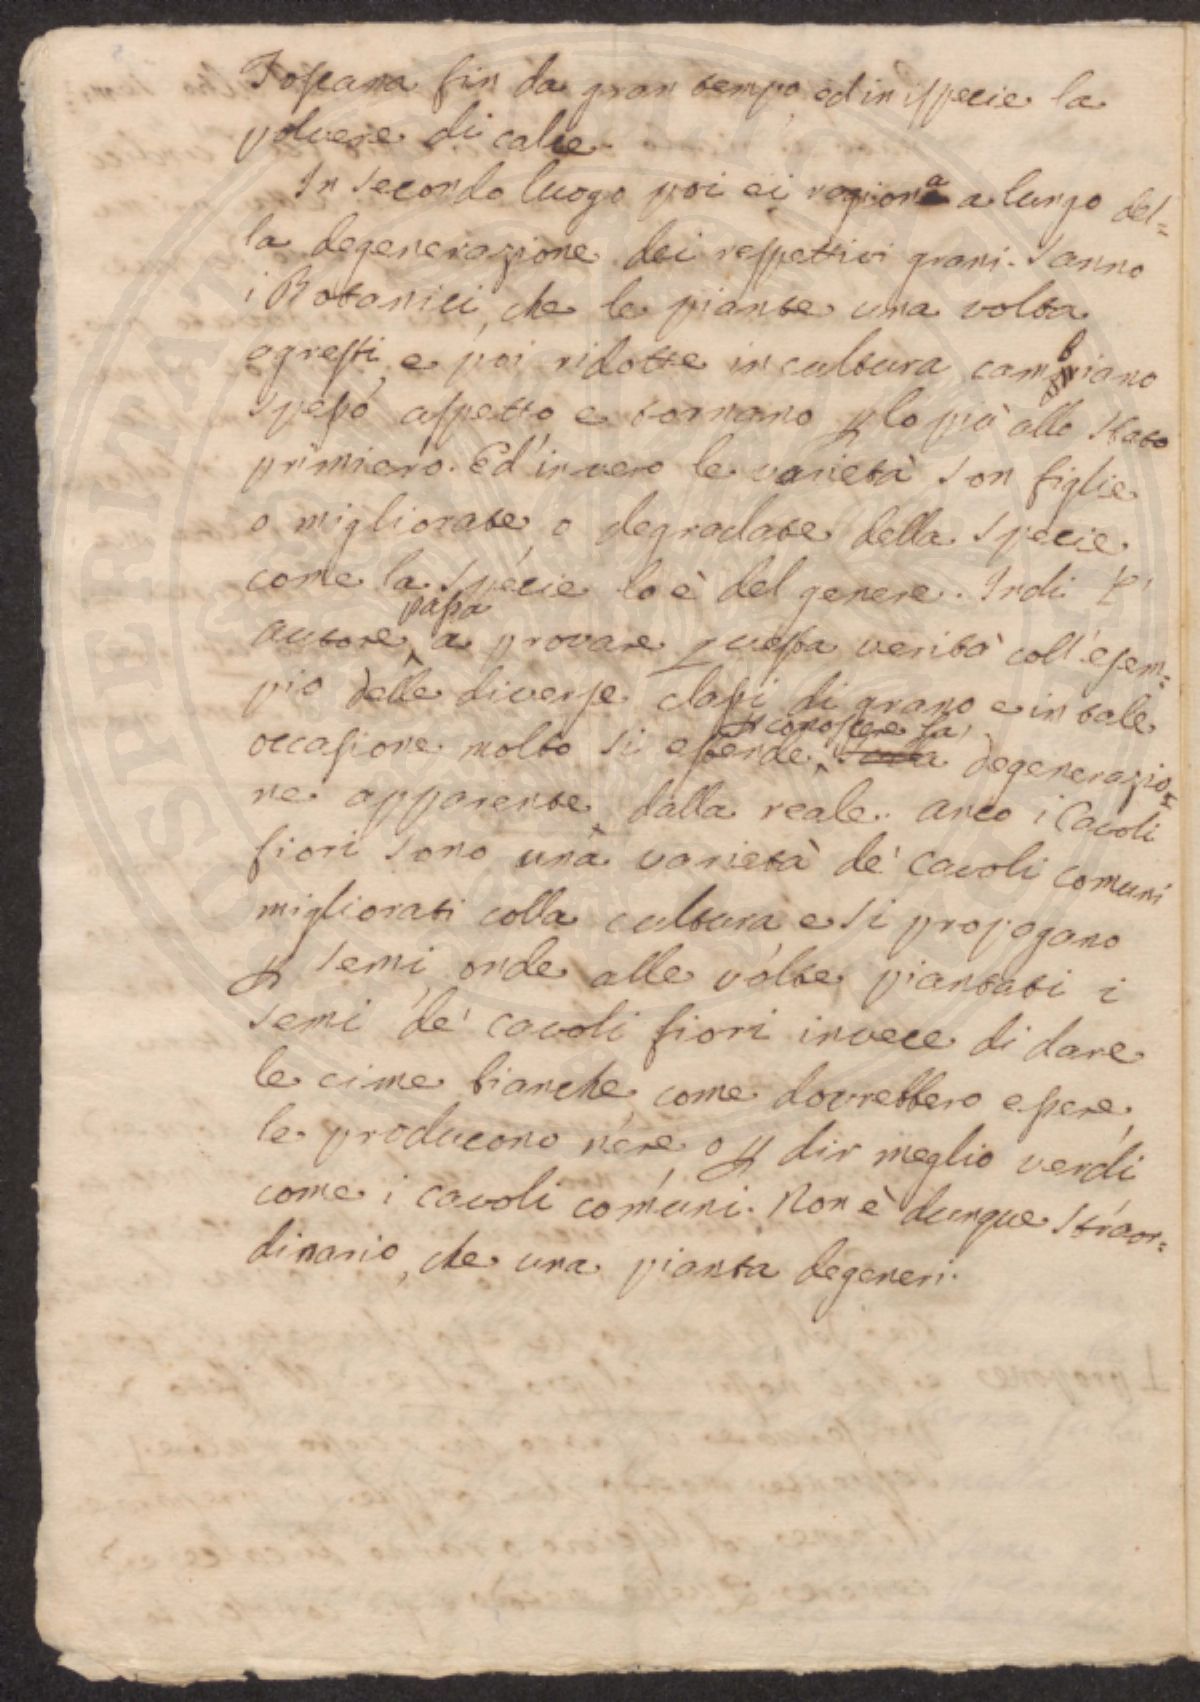 Toscana fin da gran tempo, ed in ispecie la
polvere di calce.
In secondo luogo poi ei ragiona a lungo del=
la degenerazione dei respettivi grani. Sanno
i Botanici, che le piante una volta
agresti, e poi ridotte in cultura cambiano
spesso aspetto e tornano p lo più allo stato
primiero. Ed invero le varietà son figlie
o migliorate, o degradate della specie
come la specie lo è del genere. Indi l'
autore passa a provare questa verità coll'esem=
pio delle diverse classi di grano e in tale
occasione molto si estende p conoscere la degenerazio=
ne apparente dalla reale. Anco i Cavoli
fiori sono una varietà de' cavoli comuni
migliorati colla cultura e si propagano
p semi, onde alle volte piantati i
semi de' cavoli fiori invece di dare
le cime bianche, come dovrebbero essere,
le producono nere o p dir meglio verdi
come i cavoli comuni. Non è dunque straor=
dinario, che una pianta degeneri.